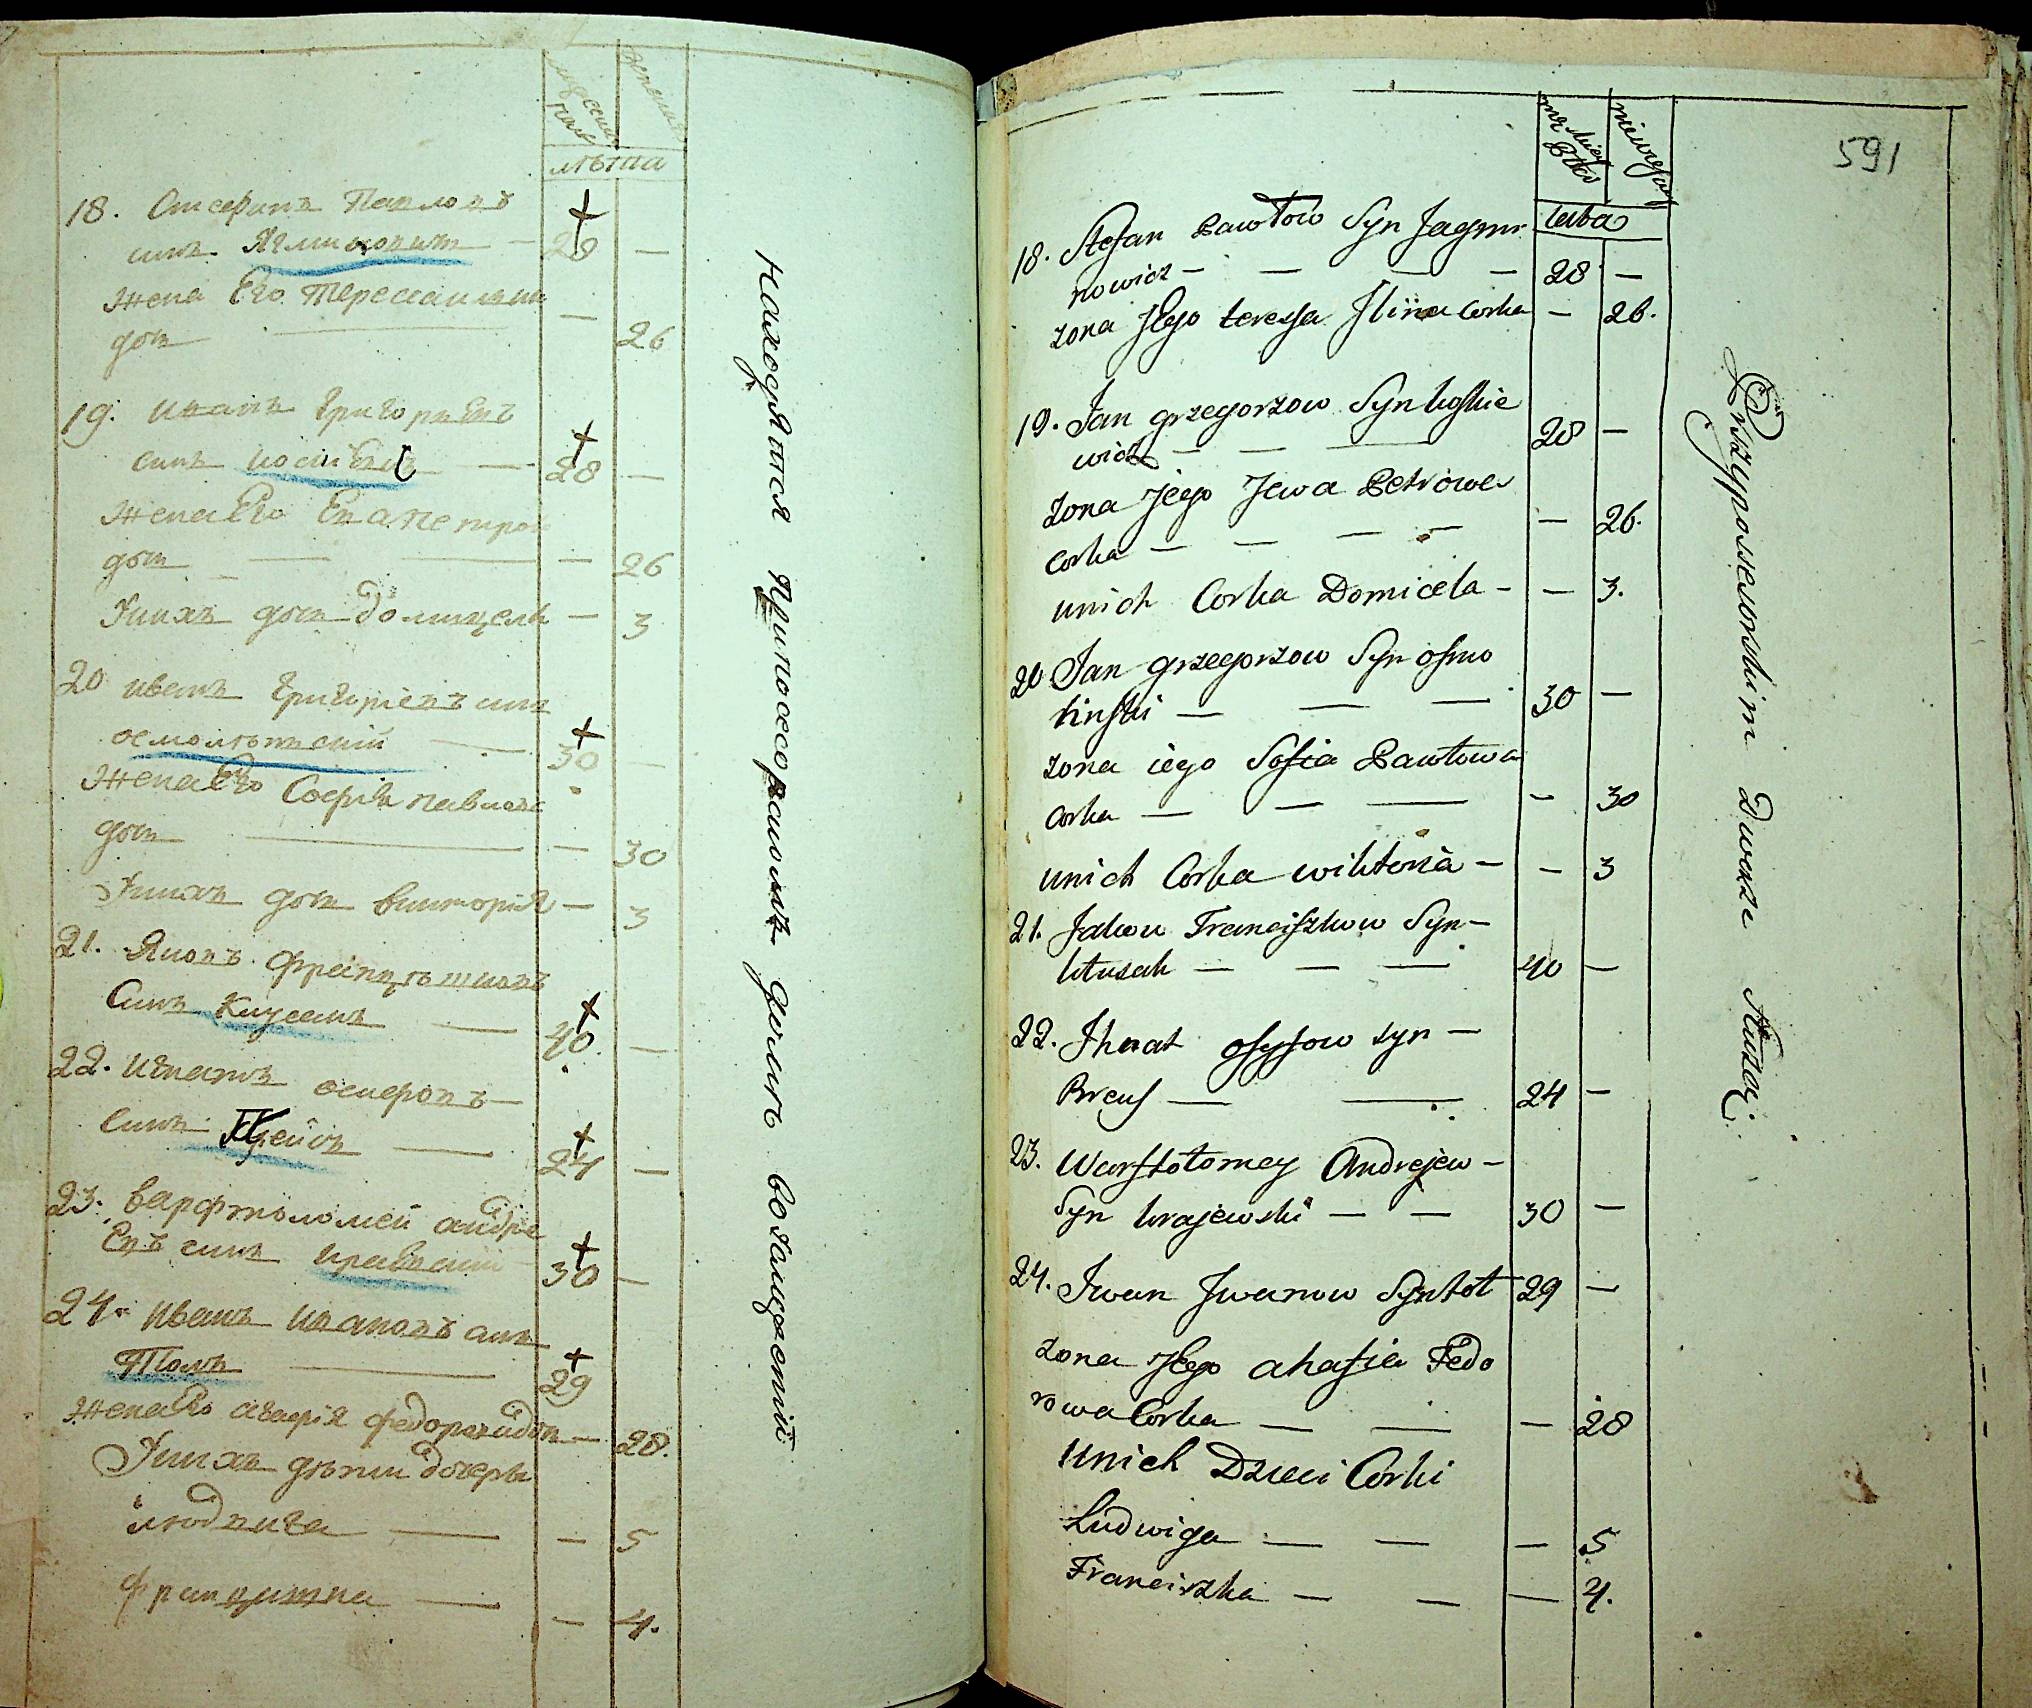 лѣта
18. Стефанъ Павловъ
синъ Ягминовичъ — 28 —
жена Его Тересса ильин
доч — 26
19. иванъ григориевъ
синъ — 28 —
жена Его Ева петров
доч — — — 26
У них доч Домицеля — 3
20 иванъ григориевъ син
осмоловский — 30 —
жена Его Софія павлова
доч — — 30
У них доч викторія — 3
21. Яковъ Францишковъ
Синъ Клусакъ — 40. —
22. игнатъ осиповъ —
Синъ — 24 —
23. варфтоломей андре
евъ синъ краевский 30 —
24. иванъ ивановъ син
Толь — 29
жена Его агафія федорова доч — 28.
У них дѣти дочеры
людвига — — 5
францишка — — 4.
находятся При посессорскомъ домѣ
591
męskiey płci
niewieściey
leta
18. Stefan Pawłow Syn Jagmi
nowicz — — — — 28 —
zona Jego teressa Jlina corka — 26.
19. Jan grzegorzow Syn koskie
wicz — — — 28 —
zona Jego Jewa Petrowa
corka — — — — — 26.
unich Corka Domicela — — 3.
20 Jan grzegorzow Syn osmo
linski — — — 30 —
zona iego Sofia Pawłowa
corka — — — — 30
unich Corka wiktoria — — 3
21. Jakow Franciszkow Syn —
klusak — — — 40 —
22. Jhnat osypow syn —
Preus — — 24 —
23. Warftołomey Andrejew —
Syn krajewski — — 30 —
24. Jwan Jwanow Syn tol 29 —
zona Jego ahafia Fedo
rowa Corka — — — 28
unich Dzieci Corki
Ludwiga — — — 5
Franciszka — — — 4.
Przy possessorskim Dworze Służący